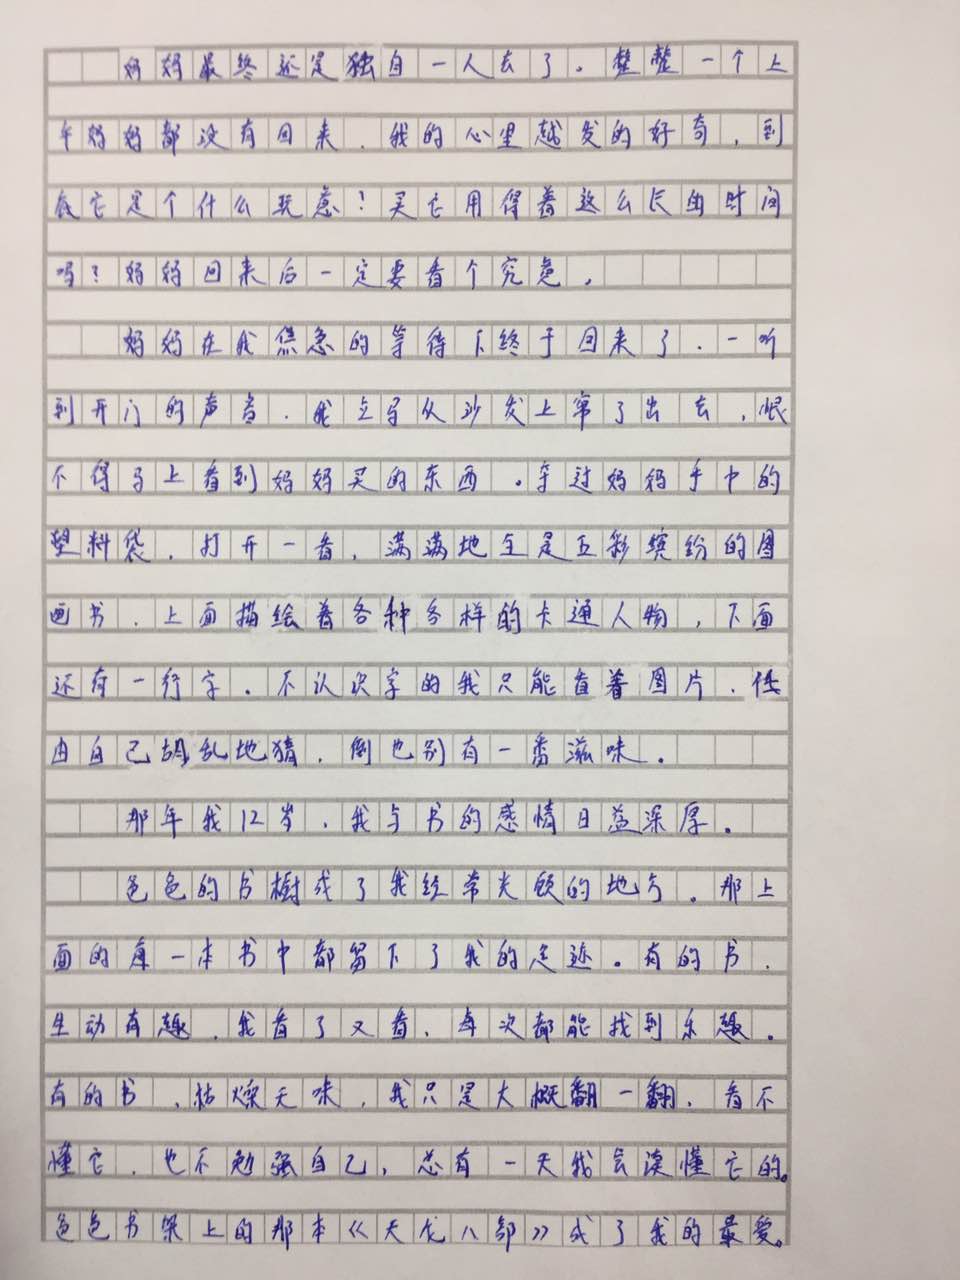 妈妈最终还是独自一人去了。整整一个上
午妈妈都没有回来，我的心里越发的好奇，到
底它是个什么玩意？买它用得着这么长的时间
吗？妈妈回来后一定要看个究竟。
妈妈在我焦急的等待下终于回来了，一听
到开门的声音，我立马从沙发上窜了出去，恨
不得马上看到妈妈买的东西。夺过妈妈手中的
塑料袋，打开一看，满满地全是五彩缤纷的图
画书，上面描绘着各种各样的卡通人物，下面
还有一行字。不认识字的我只能盲着图片，任
由自己胡乱地猜，倒也别有一番滋味。
那年我12岁，我与书的感情日益深厚。
爸爸的书橱成了我经常光顾的地方。那上
面的每一本书中都留下了我的足迹。有的书，
生动有趣，我看了又看，每次都能找到乐趣。
有的书，枯燥无味，我只是大概翻一翻，看不
懂它，也不勉强自己，总有一天我会读懂它的。
爸爸书架上的那本《天龙八部》成了我的最爱。